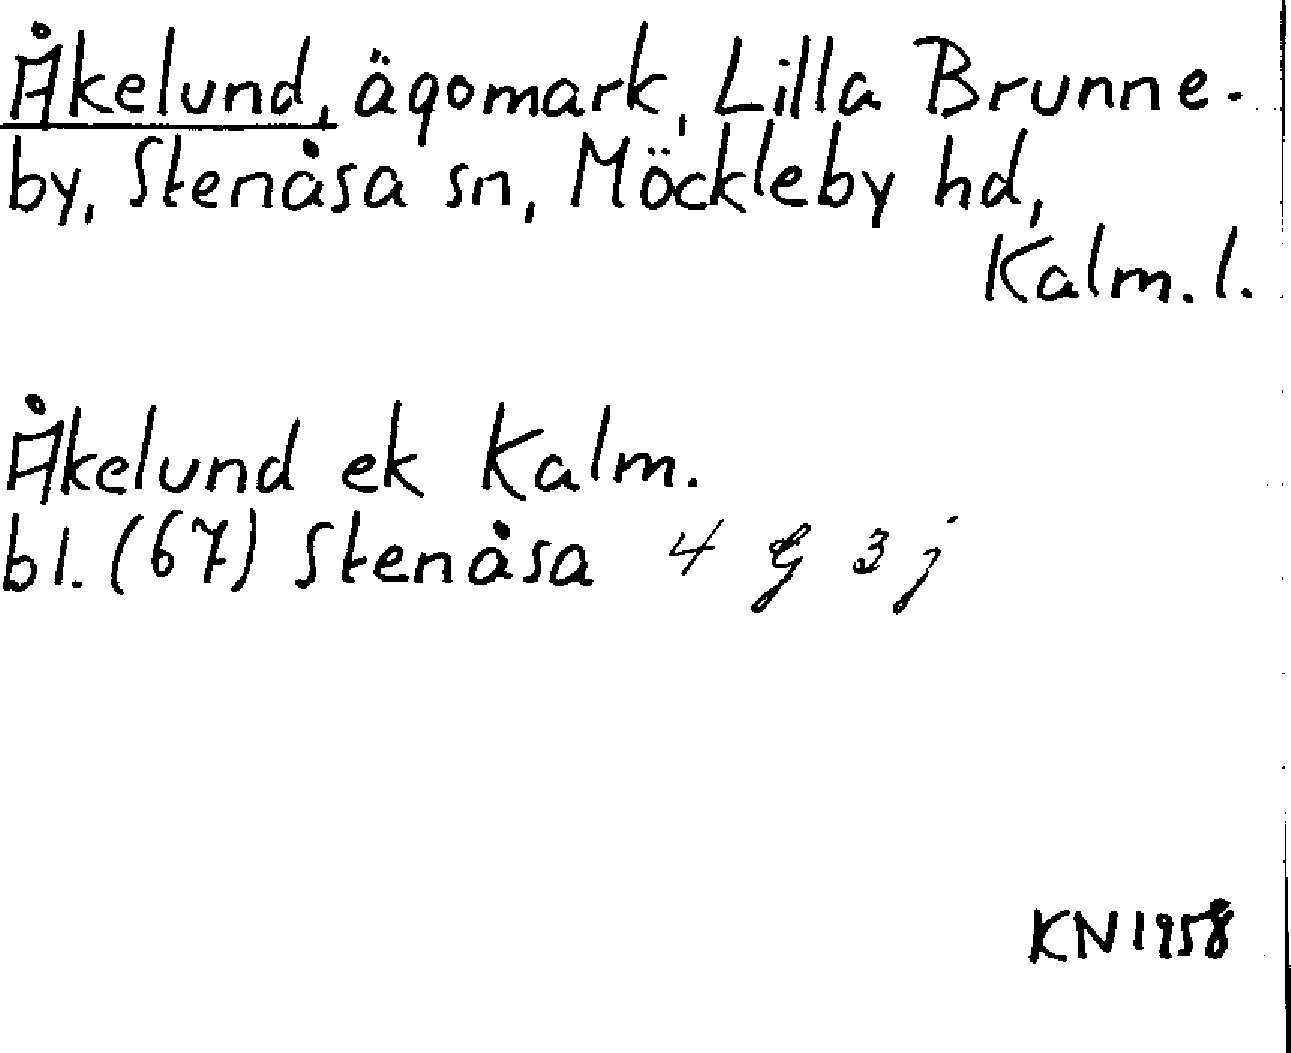 Åkelund, ägomark, Lilla Brunne-
by, Stenåsa sn, Möckleby hd,
Kalm. l.
Åkelund ek Kalm.
bl. (67) Stenåsa 4 G 3 j
KN 1958